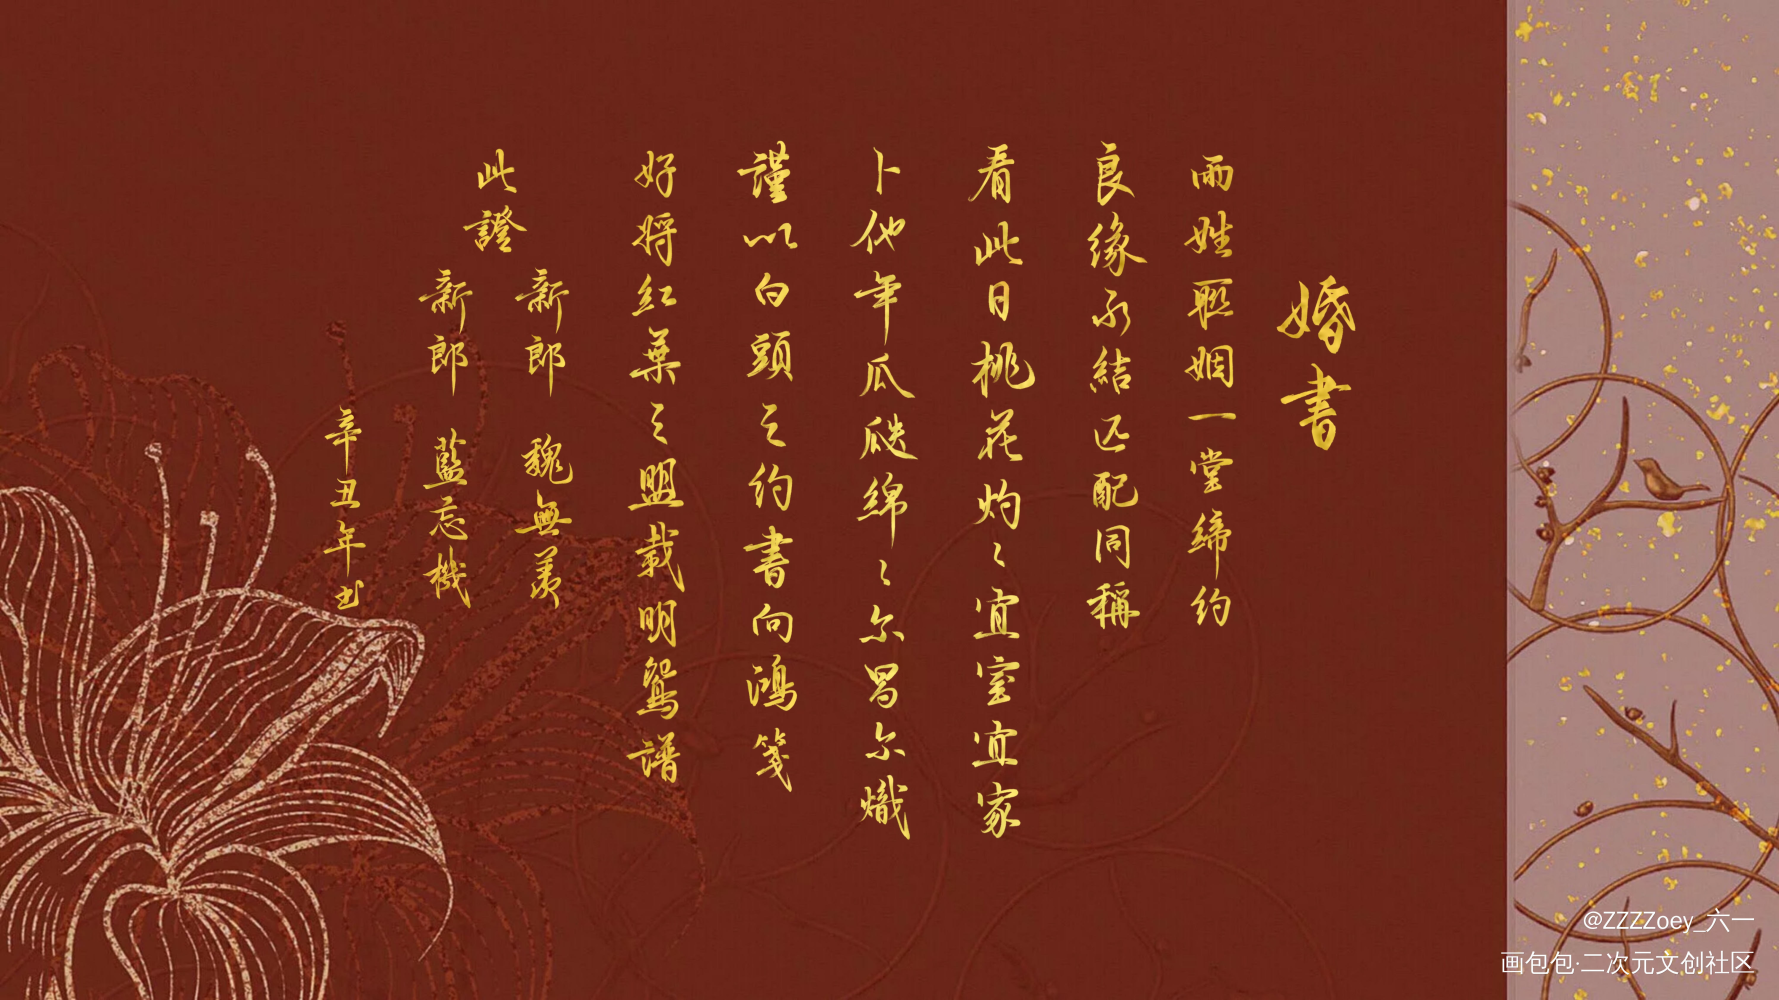 婚書
兩姓聯姻一堂締約
良缘永結匹配同稱
看此日桃花灼〻宜室宜家
卜他年瓜瓞綿〻尔昌尔熾
謹以白頭之约書向鴻箋
好將紅葉之盟载明鴛譜
此證
新郎 魏無羨
新郎 藍忘機
辛丑年书
@ZZZZoey_六一
画包包·二次元文创社区